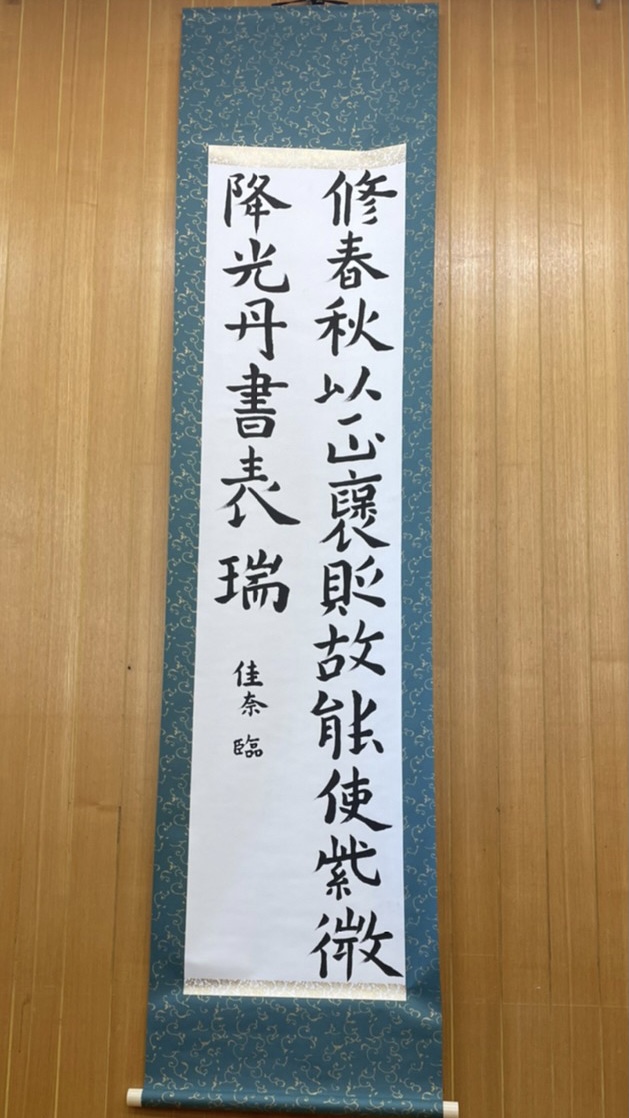 修春秋以正褒貶故能使紫微
降光丹書表瑞
佳奈臨